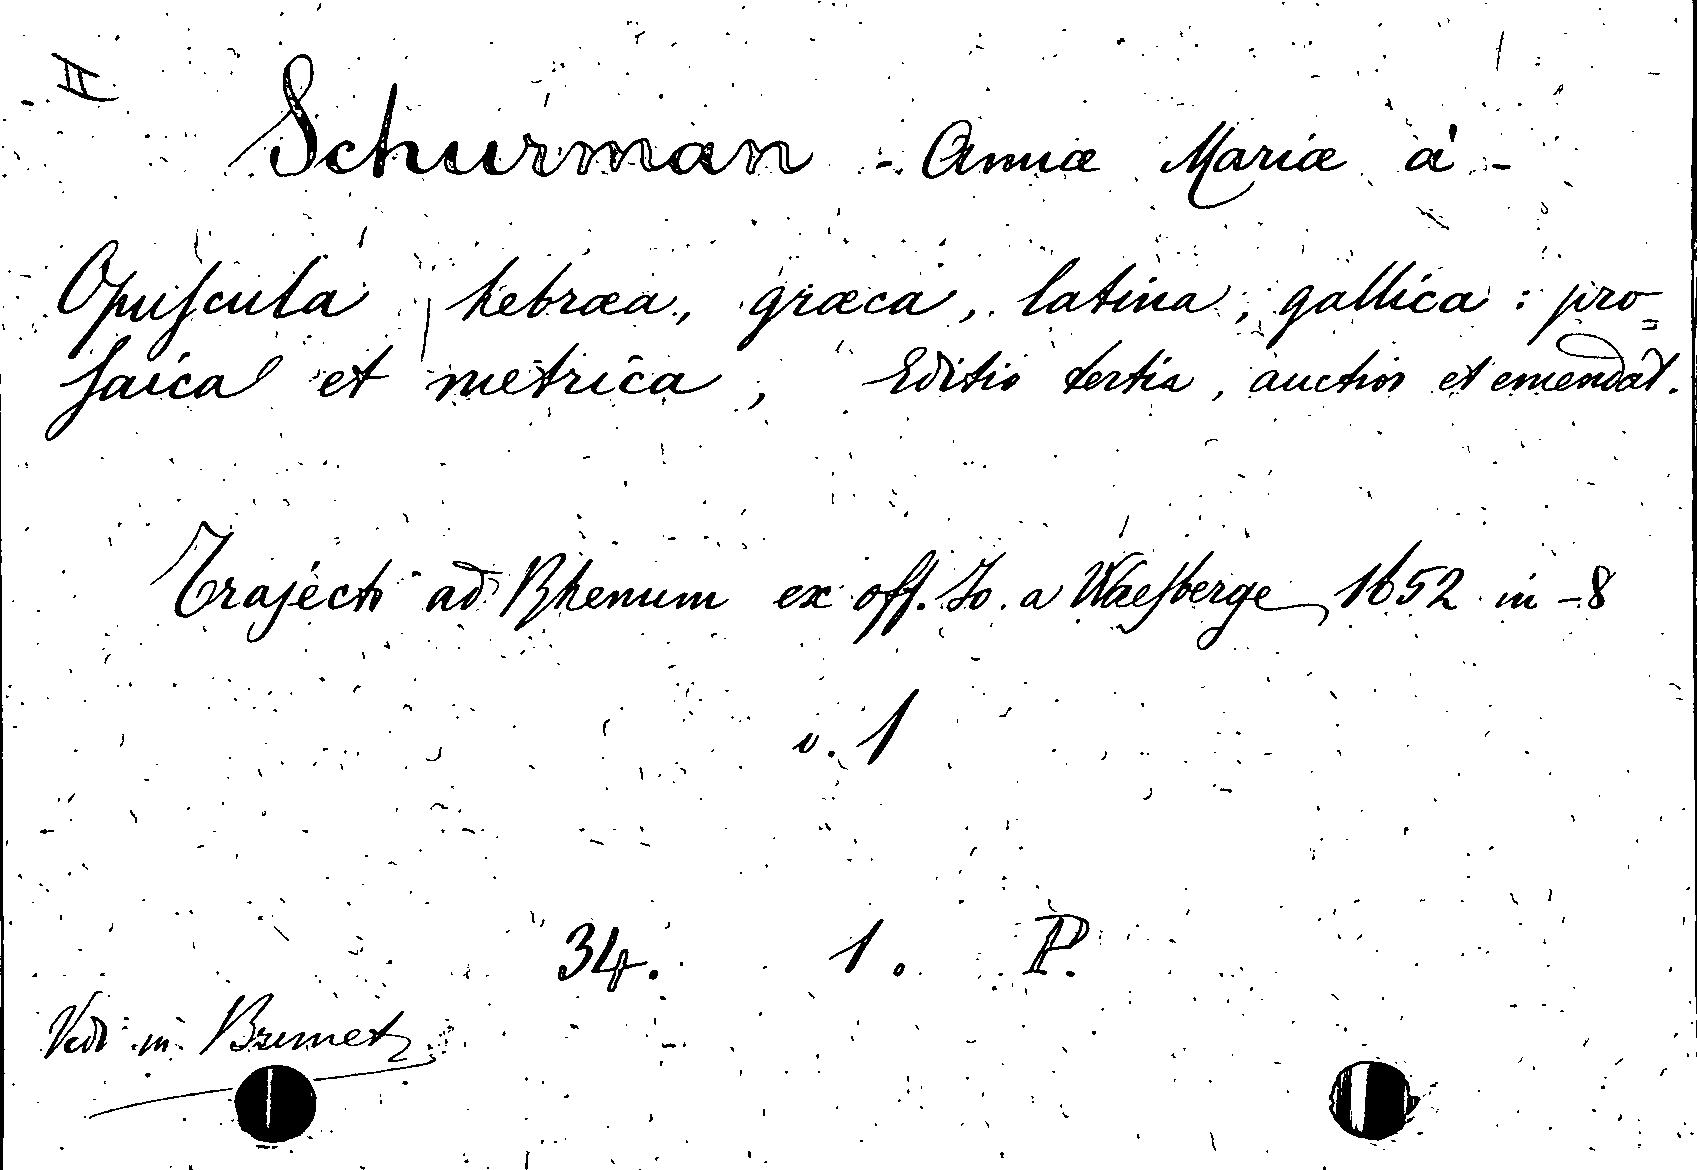 II
Schurman - Annæ Mariæ à -
Opuſcula hebræa, græca, latina, gallica: pro=
ſaica et metrica, Editio tertia, auctior et emendat.
Trajecti ad Rhenum ex off. Jo. a Waeſberge, 1652 in-8
v. 1
34. 1. P.
Vedi in Brunet